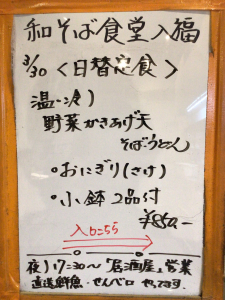 和そば食堂入福
3/30 〈日替定食〉
温・冷)
野菜かきあげ天
そば・うどん
・おにぎり(さけ)
・小鉢2品付
¥850.-
夜)17:30〜「居酒屋」営業
直送鮮魚・せんべロ やってます。